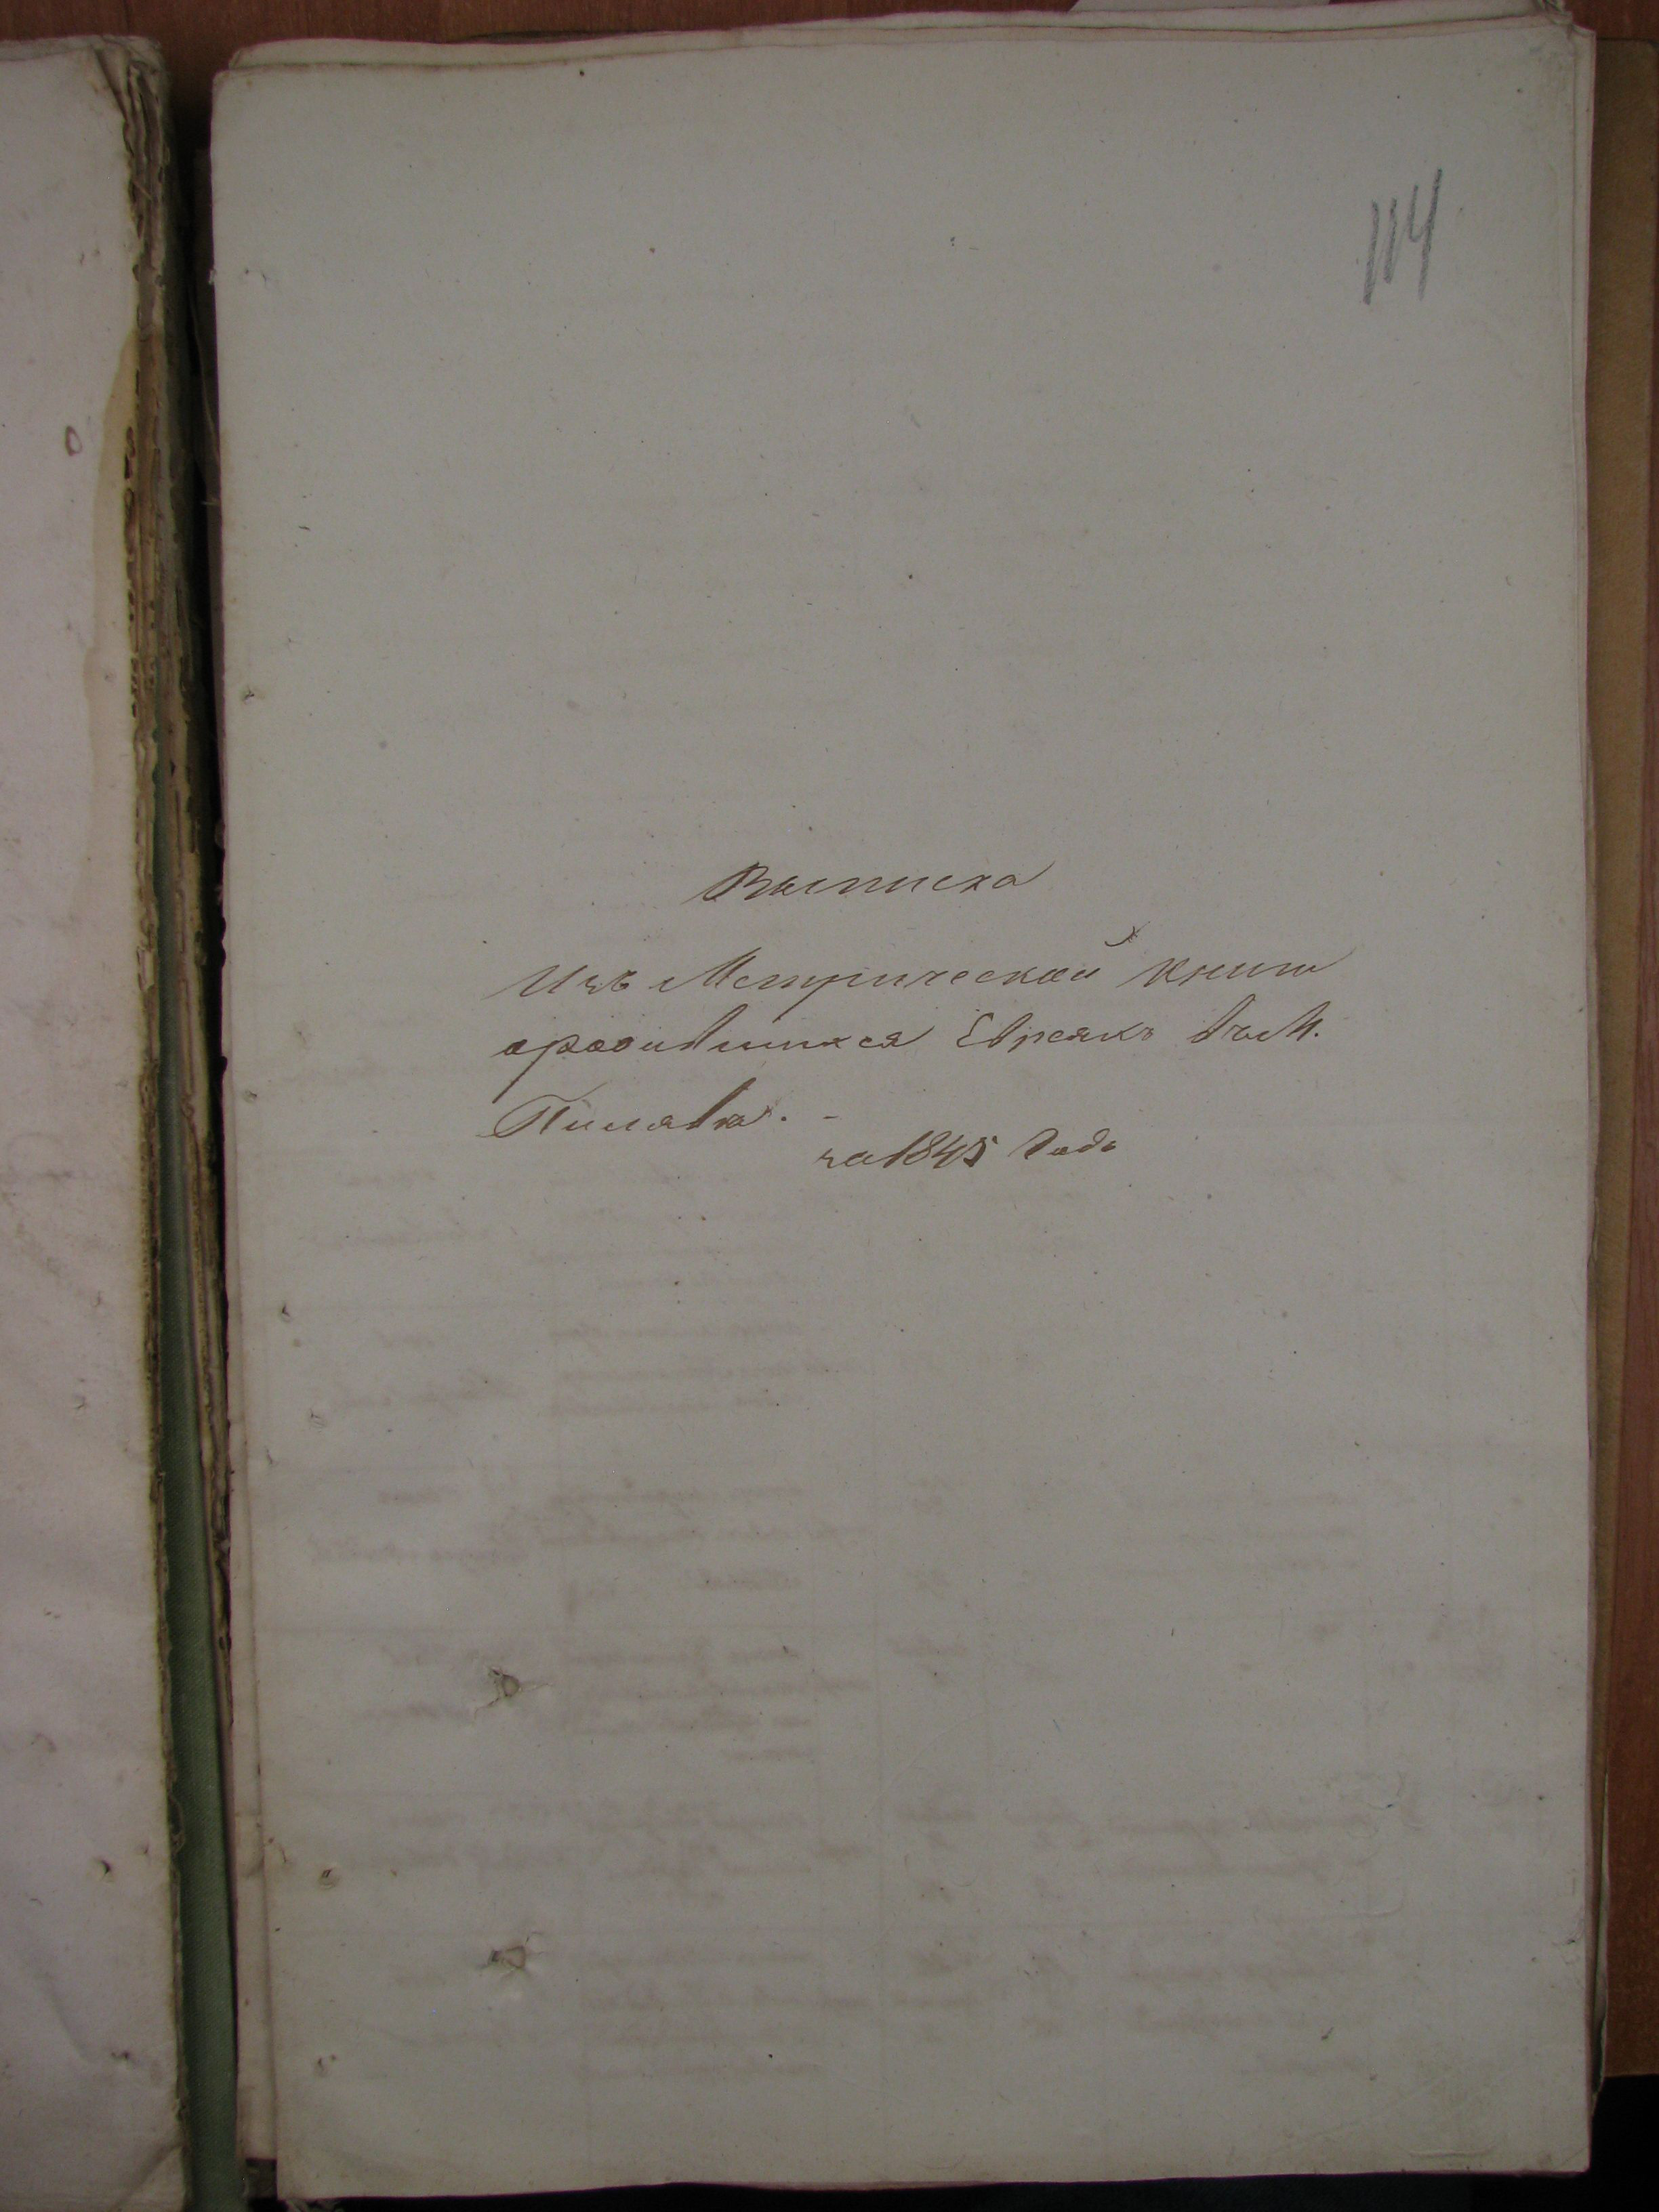 114
Выписка
Изъ Метрической книги
ородившихся Евреяхъ въ М.
Пилявка. -
за 1845 Годъ